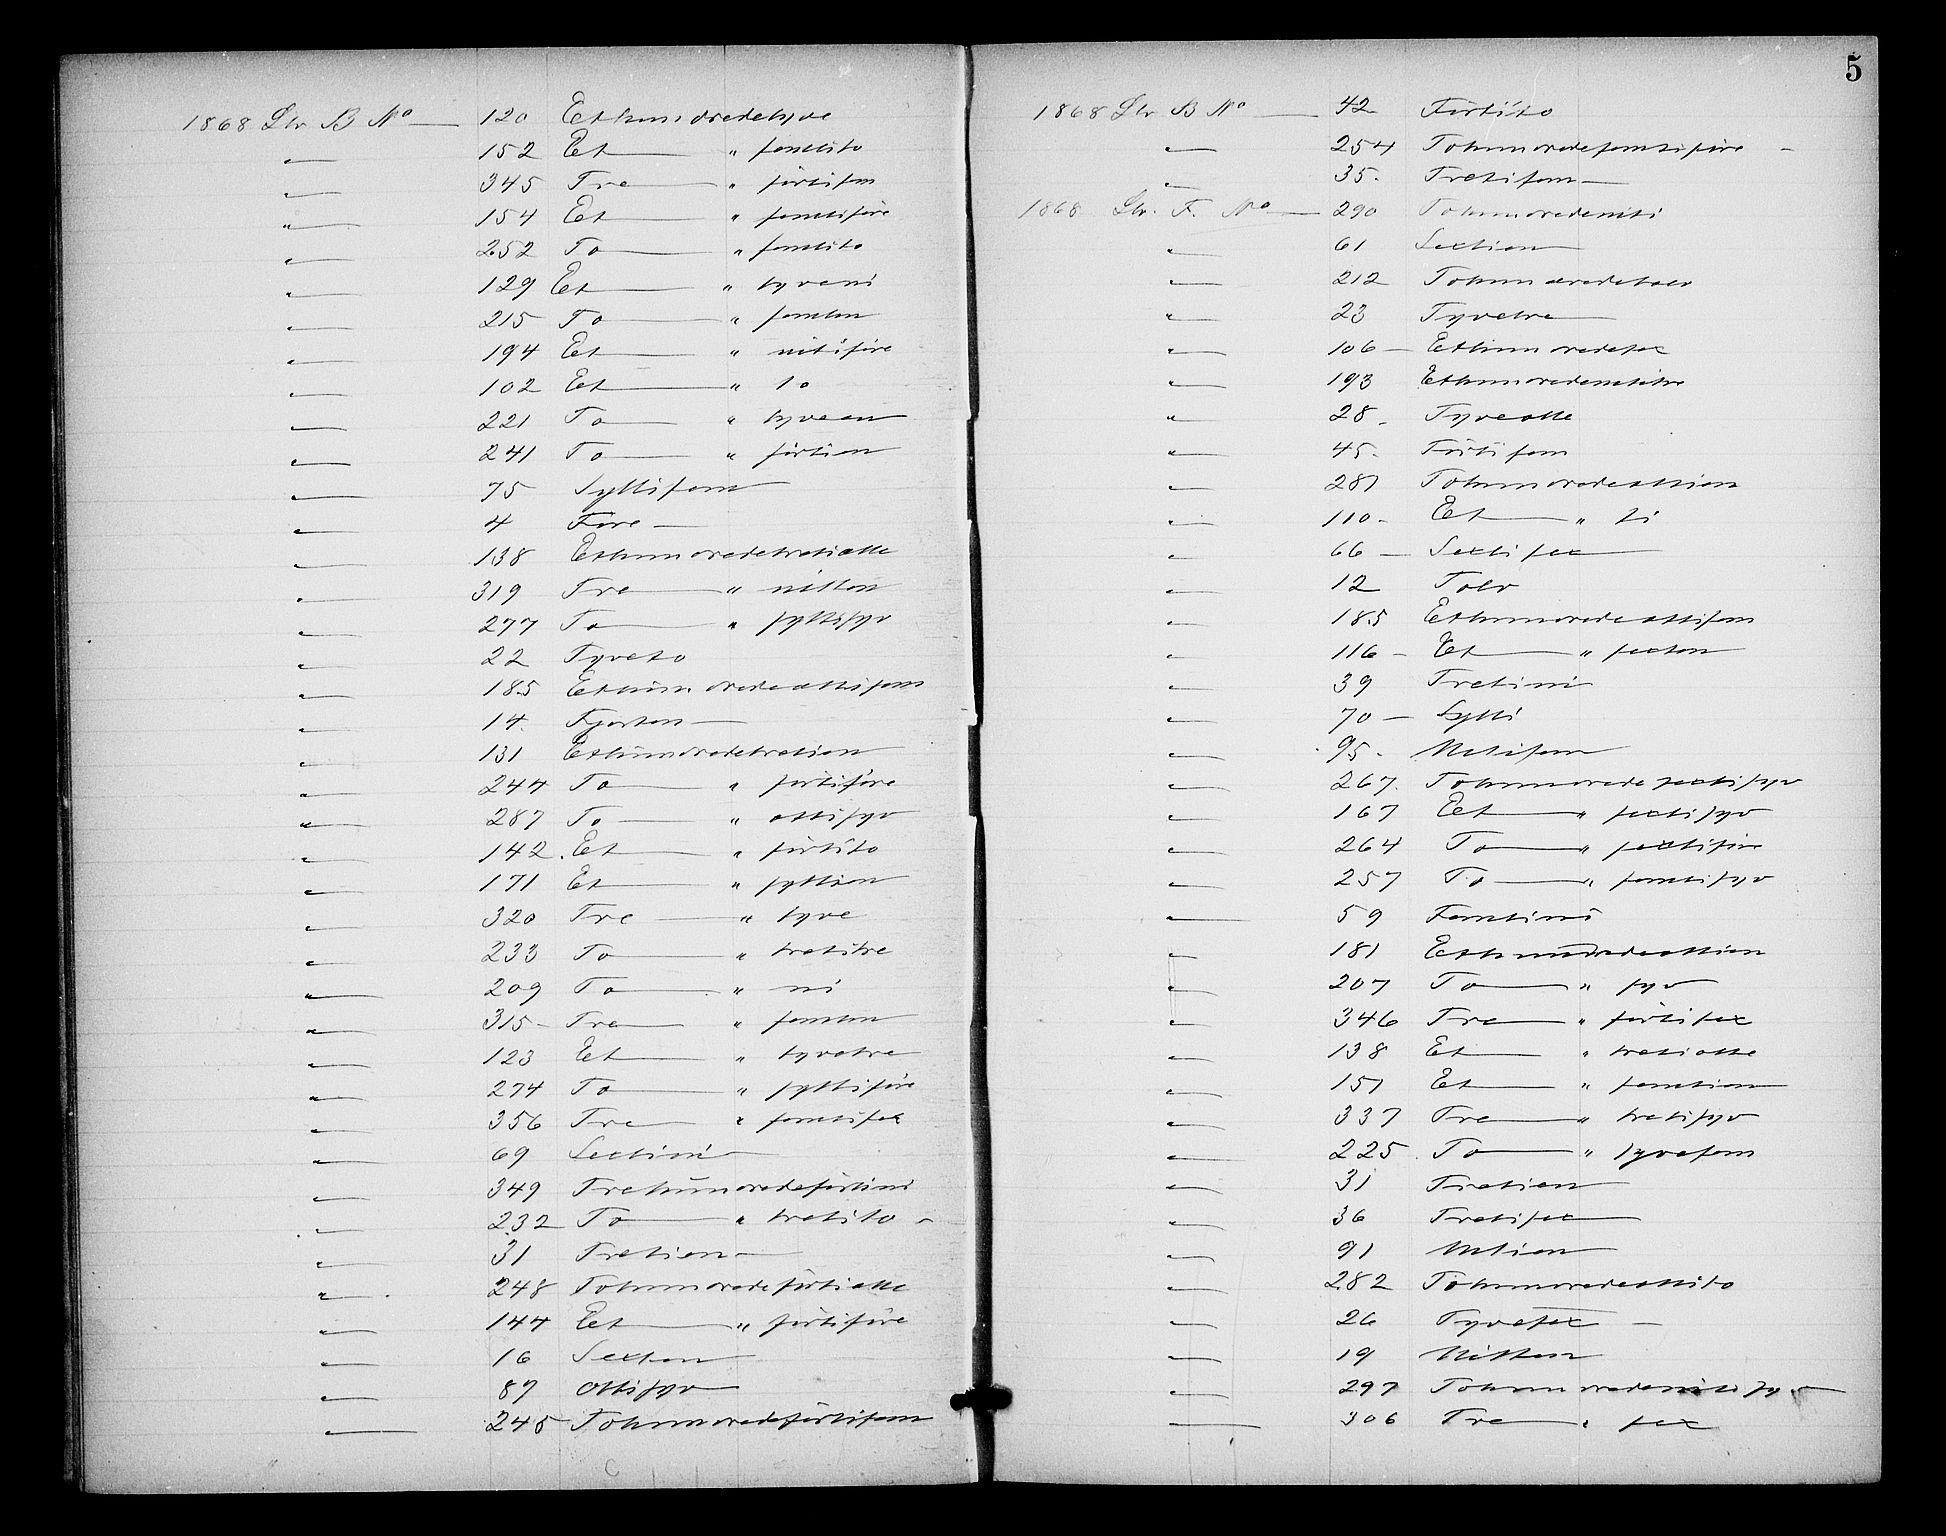 1868 Ltr B No — 120 Ethundredetyve
" — 152 Et — " femtito
" — 345 Tre — " förtifem
" — 154 Et — " femtifire
" — 252 To — " femtito
" — 129 Et — " tyveni
" — 215 To — " femten
" — 194 Et — " nitifire
" — 102 Et — " to
" — 221 To — " tyveen
" — 241 To — " förtien
" — 75 Syttifem
" — 4 Fire —
" — 138 Ethundredetretiotte
" — 319 Tre — " nitten
" — 277 To — " syttisyv
" — 22 Tyveto
" — 185 Ethundredeottifem
" — 14 Fjorten —
" — 131 Ethundredetretien
" — 244 To — " förtifire
" — 287 To — " ottisyv
" — 142. Et — " förtito
" — 171 Et — " syttien
" — 320 Tre — " tyve
" — 233 To — " tretitre
" — 209 To — " ni
" — 315 – Tre — " femten
" — 123 Et — " tyvetre
" — 274 To — " syttifire
" — 356 Tre — " femtisex
" — 69 Sextini —
" — 349 Trehundredeförtini
" — 232 To — " tretito –
" — 31 Tretien —
" — 248 Tohundredeförtiotte
" — 144 Et — " förtifire
" — 16 Sexten
" — 87 Ottisyv
" — 245 Tohundredeförtifem
5
1868 Ltr B No — 42 Förtito
" — 254 Tohundredefemtifire –
" — 35. Tretifem —
1868 Ltr. F. No — 290 Tohundredeniti
" — 61 Sextien
" — 212 Tohundredetolv
" — 23 Tyvetre
" — 106 — Ethundredesex
" — 193 Ethundredenititre
" — 28. Tyveotte
" — 45. Förtifem
" — 281 Tohundredeottien
" — 110 – Et — " ti
" — 66 — Sextisex
" — 12 Tolv
" — 185 Ethundredeottifem
" — 116 – Et — " sexten
" — 39 Tretini
" — 70 — Sytti
" — 95 – Nitifem
" — 267. Tohundredesextisyv
" — 167 Et — " sextisyv
" — 264 To — " sextifire
" — 257 To — " femtisyv
" — 59 Femtini
" — 181 Ethundredeottien
" — 207 To — " syv
" — 346 Tre — " förtisex
" — 138 Et — " tretiotte
" — 151 Et — " femtien
" — 337 Tre — " tretisyv
" — 225 To — " tyvefem
" — 31 Tretien
" — 36 Tretisex
" — 91 Nitien
" — 282 Tohundredeottito
" — 26 Tyvesex —
" — 19 Nitten
" — 297 Tohundredenitisyv
" — 306 Tre — " sex